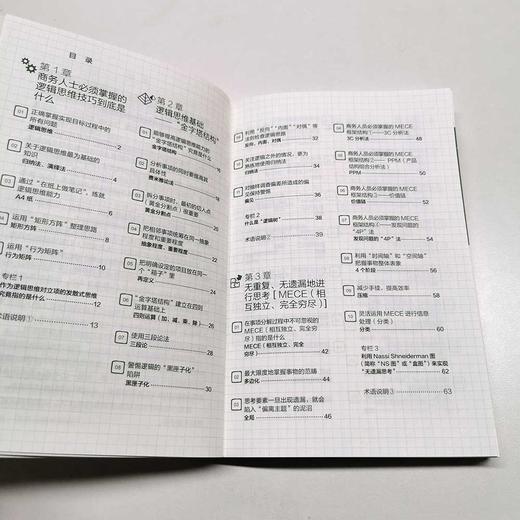 目 录
第 1 章
商务人士必须掌握的
逻辑思维技巧到底是
什么
01 正确掌握实现目标过程中的
所有问题
逻辑思维 2
02 关于逻辑思维最为基础的
知识
归纳法、演绎法 4
03 通过“在纸上做笔记”，练就
逻辑思维能力
A4 纸 6
04 运用“矩形方阵”整理思路
矩形方阵 8
运用“行为矩阵”
行为矩阵 10
专栏 1
作为逻辑思维对立项的发散式思维
究竟指的是什么 12
术语说明① 13
第 2 章
逻辑思维基础
“金字塔结构”
01 能够提高逻辑思维能力的
“金字塔结构”究竟是什么
金字塔结构
02 分析事项的同时要提高其
具体性
费米推论法
03 拆分事项时，最初的切入点
（黄金分割点）很重要
黄金分割点
04 把相邻事项统筹在同一抽象
程度和重要程度
抽象程度、重要程度
05 把明确设定的项目放在同一
个“箱子”里
再定义
06 “金字塔结构”建立在四则
运算基础上
四则运算（加、减、乘、除）
07 使用三段论法
三段论 28
08 警惕逻辑的“黑匣子化”
陷阱
黑匣子化 30
09 利用“反向”“内面”“对偶”等
法则检查逻辑思路
反向、内面、对偶 32
关注逻辑之外的情况，更为
归纳法 34
对抽样调查偏差所造成的偏
见保持警惕
偏见 36
专栏 2
什么是“逻辑树” 38
术语说明② 39
第 3 章
无重复、无遗漏地进
行思考［MECE（相
互独立、完全穷尽）］
01 在事项分解过程中不可忽视的
MECE（相互独立、完全穷
尽）指的是什么
MECE（相互独立、完全
穷尽） 42
02 最大限度地掌握事物的范畴
多边化 44
03 思考要素一旦出现遗漏，就会
陷入“偏离主题”的泥沼
全局 46
04 商务人员必须掌握的 MECE
框架结构①——3C 分析法
3C 分析法 48
05 商务人员必须掌握的 MECE
框架结构②——PPM（产品
结构组合分析法）
PPM 50
06 商务人员必须掌握的 MECE
框架结构③——价值链
价值链 52
商务人员必须掌握的 MECE
框架结构④——发现问题的
“4P”法
发现问题的“4P”法 54
08 利用“时间轴”和“空间轴”
把握事物整体表象
4 个阶段 56
09 减少手续，提高效率
压缩 58
10 灵活运用 MECE 进行信息
处理（分类）
分类 60
专栏 3
利用 Nassi Shneiderman 图
（简称“NS 图”或“盒图”）来实现
“无遗漏思考” 62
术语说明③ 63